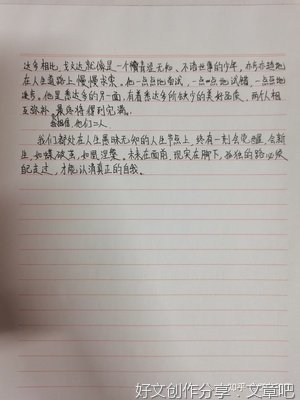 达多相比，戈文达就像是一个懵懂无知、不谙世事的少年，亦步亦趋地
在人生道路上慢慢求索。他一点点地尝试，一点点地试错，一点点地
进步。他是悉达多的另一面，有着悉达多所缺少的美好品质，两个人相
互弥补，最终将得到完满。
我相信，他们二人
我们都处在人生愚昧无知的人生节点上，终有一刻会觉醒，会新
生，如蝶破茧，如凰涅槃。未来在面前，现实在脚下，孤独的路必须
自己走过，才能认清真正的自我。
好文创作分享：文章吧